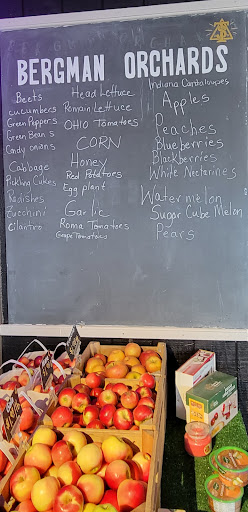 BERGMAN ORCHARDS
Beets
cucumbers
Green Peppers
Green Beans
Candy onions
Cabbage
Pickling Cukes
Radishes
Zucchini
cilantro
Head Lettuce
Romain Lettuce
OHIO Tomatoes
CORN
Honey
Red Potatoes
Egg plant
Garlic
Roma Tomatoes
Grape Tomatoes
Indiana Cantaloupes
Apples
Peaches
Blueberries
Blackberries
White Nectarines
Watermelon
Sugar Cube Melon
Pears